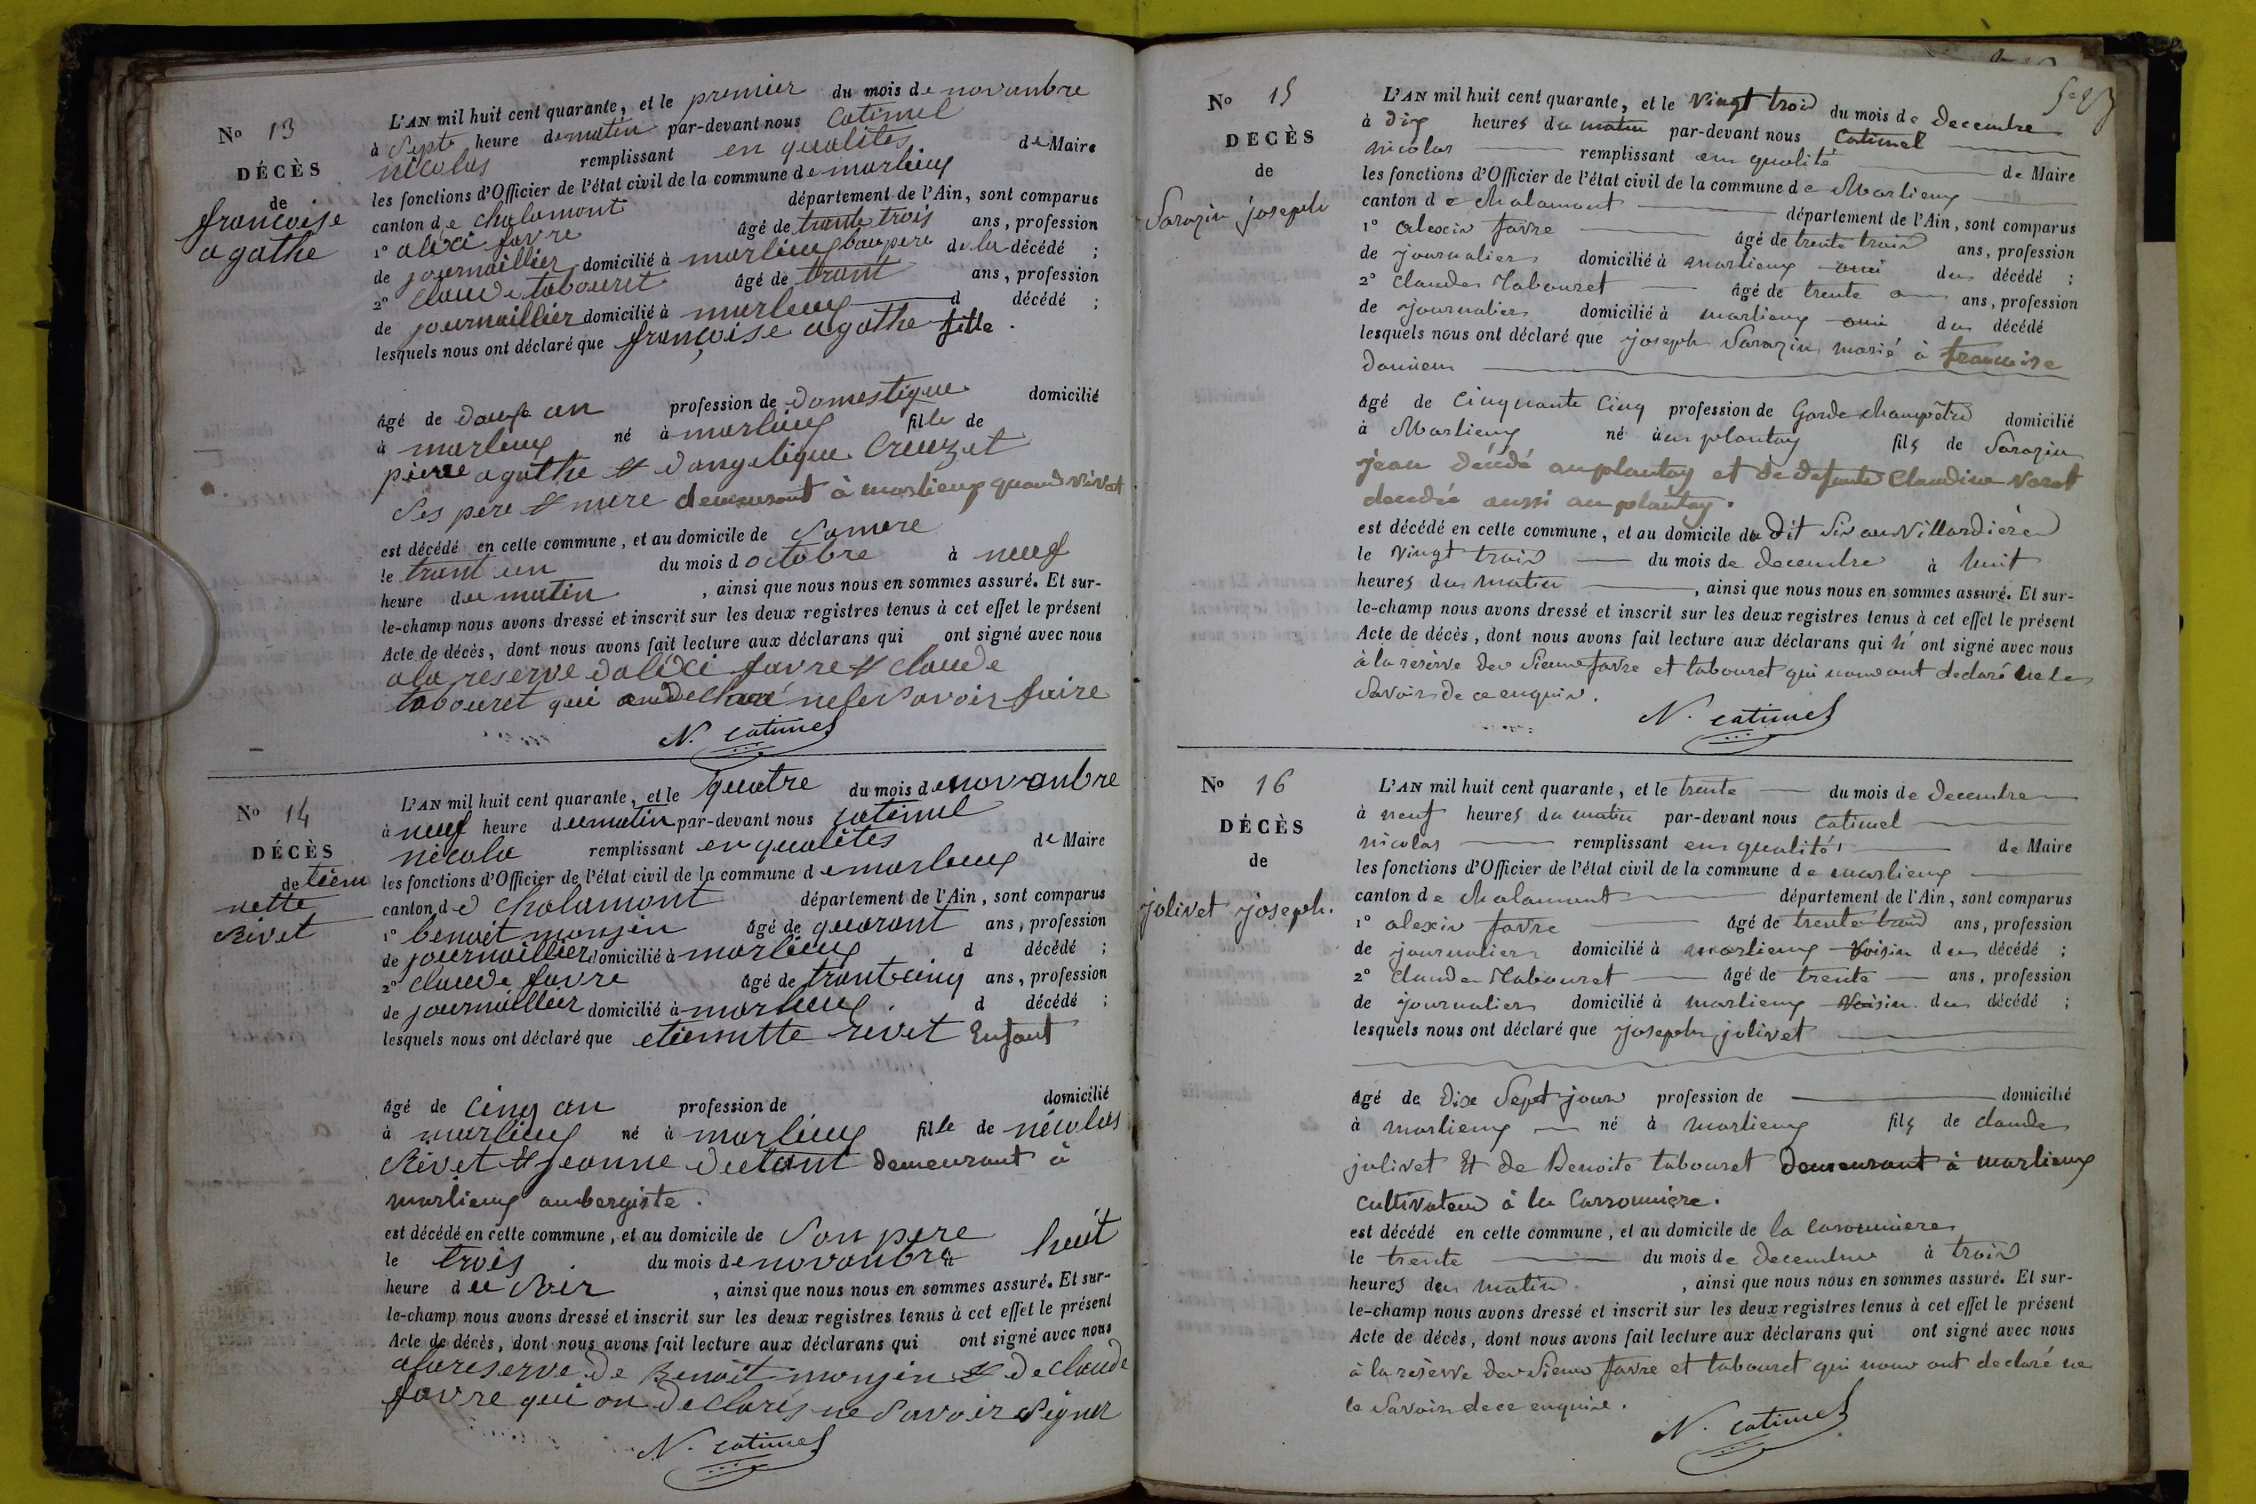 No 13
DÉCÈS
de
francoise
agathe
L'AN mil huit cent quarante, et le premier du mois de novanbre
à Septe heure dematin par-devant nous Catimel
nicolas remplissant en qualités de Maire
les fonctions d'Officier de l'état civil de la commune de marlieux
canton de chalamont département de l'Ain, sont comparus
1o alixi favre âgé de trante trois ans, profession
de journaillier domicilié à marlieux baupere de la décédé ;
2o Claude tabouret âgé de trant ans, profession
de journaillier domicilié à marlieux d décédé ;
lesquels nous ont déclaré que françoise agathe fille .
âgé de douze an profession de domestique domicilié
à marlieux né à marlieux fille de
pierre agathe et dangelique Creuzet
Ses pere et mere demeurant à marlieux quand vivat
est décédé en cette commune, et au domicile de Samere
le trant un du mois d octobre à neuf
heure du matin , ainsi que nous nous en sommes assuré. Et sur-
le-champ nous avons dressé et inscrit sur les deux registres tenus à cet effet le présent
Acte de décès, dont nous avons fait lecture aux déclarans qui ont signé avec nous
ala reserve daléxi favre et claude
tabouret qui on declaré ne le savoir faire
N. Catimel
No 14
DÉCÈS
de tiem
nette
Rivet
L'AN mil huit cent quarante, et le quatre du mois de novanbre
à neuf heure du matin par-devant nous Catimel
nicola remplissant en qualités de Maire
les fonctions d'Officier de l'état civil de la commune de marlieux
canton de chalamont département de l'Ain, sont comparus
1o benoit monjin âgé de quarant ans, profession
de journaillier domicilié à marlieux d décédé ;
2o claude favre âgé de trantcinq ans, profession
de journaillier domicilié à marlieux . d décédé ;
lesquels nous ont déclaré que etiennette revet Enfant
âgé de cinq an profession de domicilié
à marlieux né à marlieux fille de nicolas
Rivet et Jeanne dutant demeurant à
marlieux aubergiste .
est décédé en cette commune, et au domicile de Son pere
le trois du mois de novanbre à huit
heure du Soir , ainsi que nous nous en sommes assuré. Et sur-
le-champ nous avons dressé et inscrit sur les deux registres tenus à cet effet le présent
Acte de décès, dont nous avons fait lecture aux déclarans qui ont signé avec nous
alareserve de Benoit monjin et de claude
favre qui on declarés ne Savoir Signer
N. Catimel
No 15
DÉCÈS
de
Sarazin joseph
L'AN mil huit cent quarante, et le vingt trois du mois de decembre
à dix heures du matin par-devant nous Catimel
nicolas remplissant en qualité de Maire
les fonctions d'Officier de l'état civil de la commune de Marlieux
canton de chalamont département de l'Ain, sont comparus
1o alexis favre âgé de trente trois ans, profession
de journalier domicilié à marlieux ami du décédé ;
2o claude Tabouret âgé de trente ans, profession
de journalier domicilié à marlieux ami du décédé
lesquels nous ont déclaré que joseph Sarazin marié à francoise
âgé de cinquante cinq profession de Garde champêtre domicilié
à Marlieux né au plantay fils de Sarazin
jean décédé au plantay et de defunte Claudine Voret
decedée aussi au plantay .
est décédé en cette commune, et au domicile du dit Sis au Villardières
le vingt trois du mois de decembre à huit
heures du matin , ainsi que nous nous en sommes assuré. Et sur-
le-champ nous avons dressé et inscrit sur les deux registres tenus à cet effet le présent
Acte de décès, dont nous avons fait lecture aux déclarans qui n' ont signé avec nous
à la reserve des Sieurs favre et tabouret qui nous ont declaré ne le
Savoir de ce enquis .
N. Catimel
No 16
DÉCÈS
de
jolivet joseph.
L'AN mil huit cent quarante, et le trente du mois de decembre
à neuf heures du matin par-devant nous Catimel
nicolas remplissant en qualité de Maire
les fonctions d'Officier de l'état civil de la commune de marlieux
canton de chalamont département de l'Ain, sont comparus
1o alexis favre âgé de trente trois ans, profession
de journalier domicilié à marlieux voisin du décédé ;
2o claude Tabouret âgé de trente ans, profession
de journalier domicilié à marlieux voisin du décédé ;
lesquels nous ont déclaré que joseph jolivet
âgé de dix Sept jours profession de domicilié
à marlieux né à marlieux fils de claude
jolivet Et de Benoite tabouret demeurant à marlieux
cultivateur à la Carronnière .
est décédé en cette commune, et au domicile de la caronniere
le trente du mois de decembre à trois
heures du matin , ainsi que nous nous en sommes assuré. Et sur-
le-champ nous avons dressé et inscrit sur les deux registres tenus à cet effet le présent
Acte de décès, dont nous avons fait lecture aux déclarans qui ont signé avec nous
à la reserve des Sieurs favre et tabouret qui nous ont declaré ne
le Savoir de ce enquis .
N. Catimel